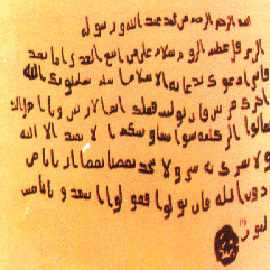 بسم الله الرحمن الرحيم من محمد عبد الله ورسوله
الى هرقل عظيم الروم سلام على من اتبع الهدى اما بعد
فانى ادعوك بدعاية الاسلام اسلم تسلم يوتك الله
اجرك مرتين فان توليت فعليك اثم الاريسيين ويا اهل
تعالوا الى كلمة سوا بيننا وبينكم الا نعبد الا الله
ولا نشرك به شيا ولا يتخذ بعضنا بعضا اربابا من
دون الله فان تولوا فقولوا اشهدوا بانا مس
لمون